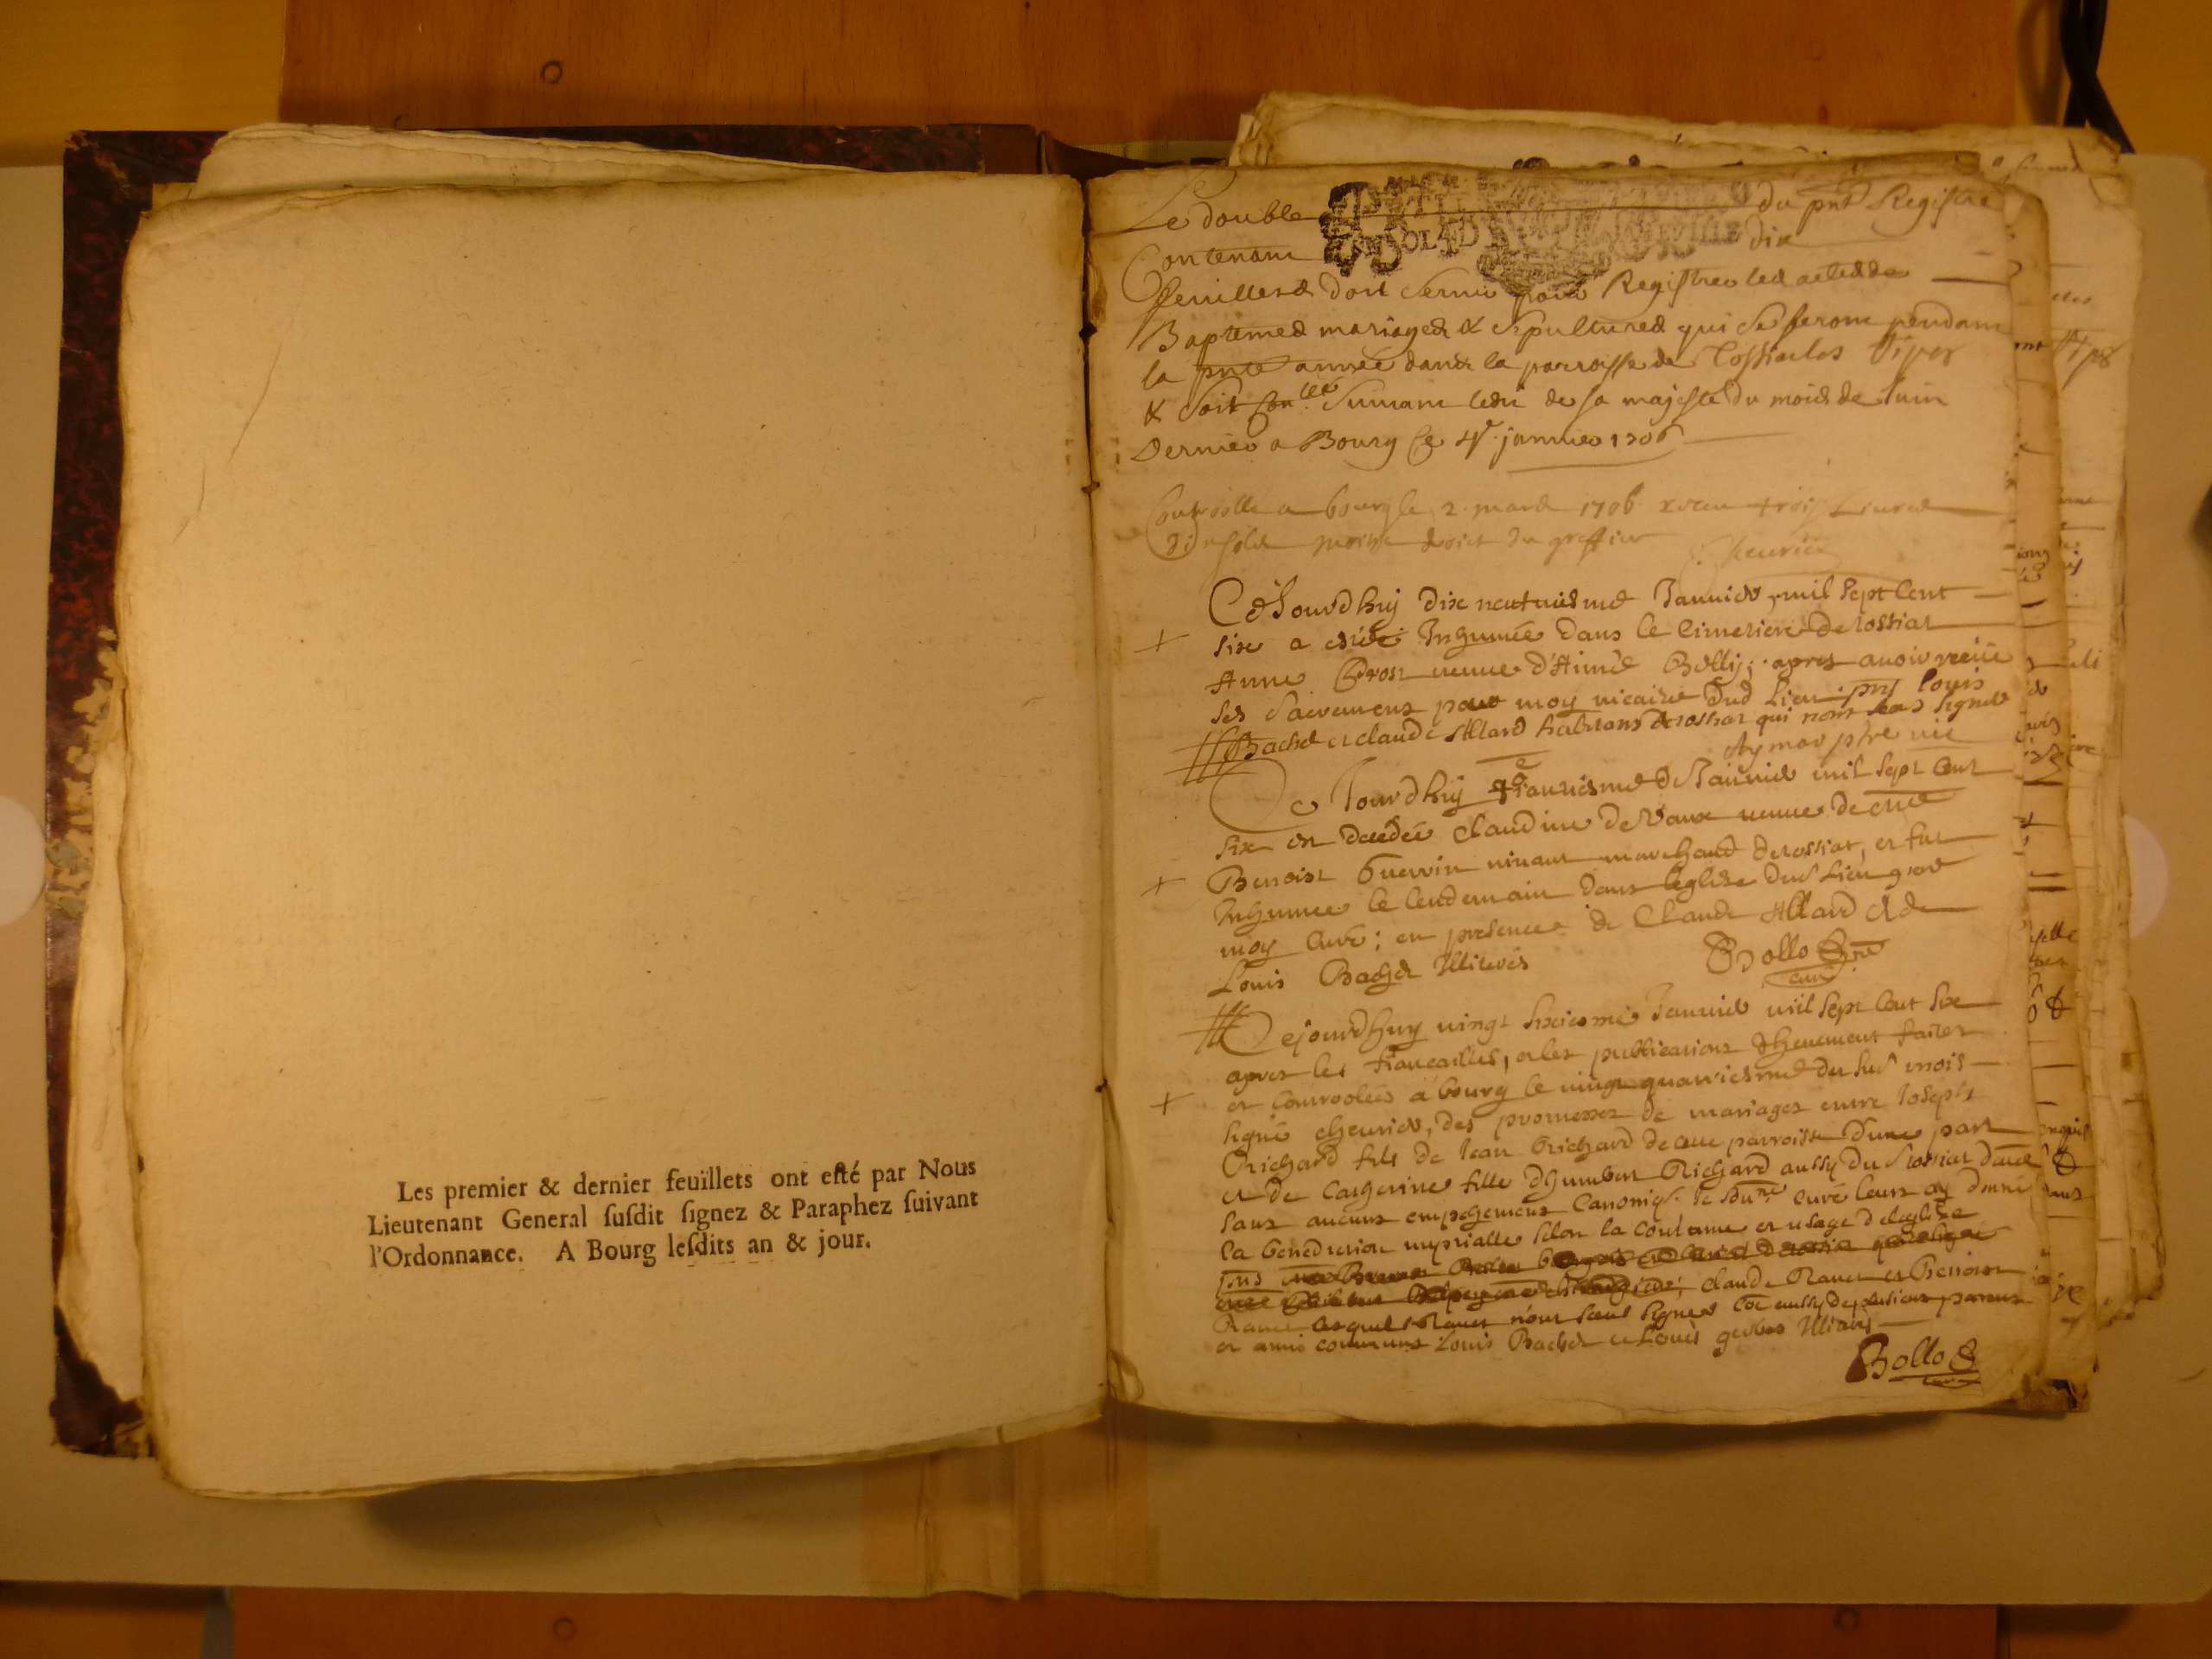 Les premier & dernier feüillets ont eſté par Nous
Lieutenant General ſuſdit ſignez & Paraphez ſuivant
l'Ordonnance. A Bourg leſdits an & jour.
Le double du pnt Registre
Contenant dix
feuilletz doit servir pour Registrer les actes de
Baptemes mariages & sepultures qui se feront pendant
la pnte année dans la parroisse de
& soit suivant ledit de sa majesté du mois de Juin
dernier a Bourg ce 4e janvier 1706
Controlle a bourg le 2 mars 1706 receu trois Liures
dix sols droict du greffier
Cheurier
Ce Jourdhuy dix neufuiesme Januier mil sept Cent
six a estée Inhumée dans le Cimetiere de rossiat
Anne veuue d'Aimé après auoir receüe
ses Sacremens moy vicaire dud Lieu pnts Louis
Bachet et claude Allard habitans de rossiat qui n'ont sceus signer
Aymar ptre vic
Ce Jourdhuy Januier mil sept Cent
six est decedée Claudine Deuaux veuue de
Benoist Guerrin viuant marchand de rossiat, et fut
Inhumee le lendemain dans leglise dud Lieu par
moy Curé; en presence de Claude Allard & de
Louis Bachet Illiterés
Bollo
curé
Cejourdhuy vingt sixiesme Januier mil sept Cent six
apres les fiancailles, et les publications faites
et Controolées a bourg le vingt quatriesme du sud mois
signé cheurier, des promesses de mariages entre Joseph
Richard fils de Jean Richard de cette parroisse d'une part
et de Catherine fille d'humbert Richard aussy du rossiat
sans aucuns empeschemens Canoniq. Je curé leurs ay donné
la benediction nuptialle selon la Coutume et usage de leglise
pnts claude Rauet et Benoist
Rauet lesquels Rauet n'ont sceus signer aussy de plusieurs parens
et amis communs Louis Bachet et Louis Illiterés
Bollo